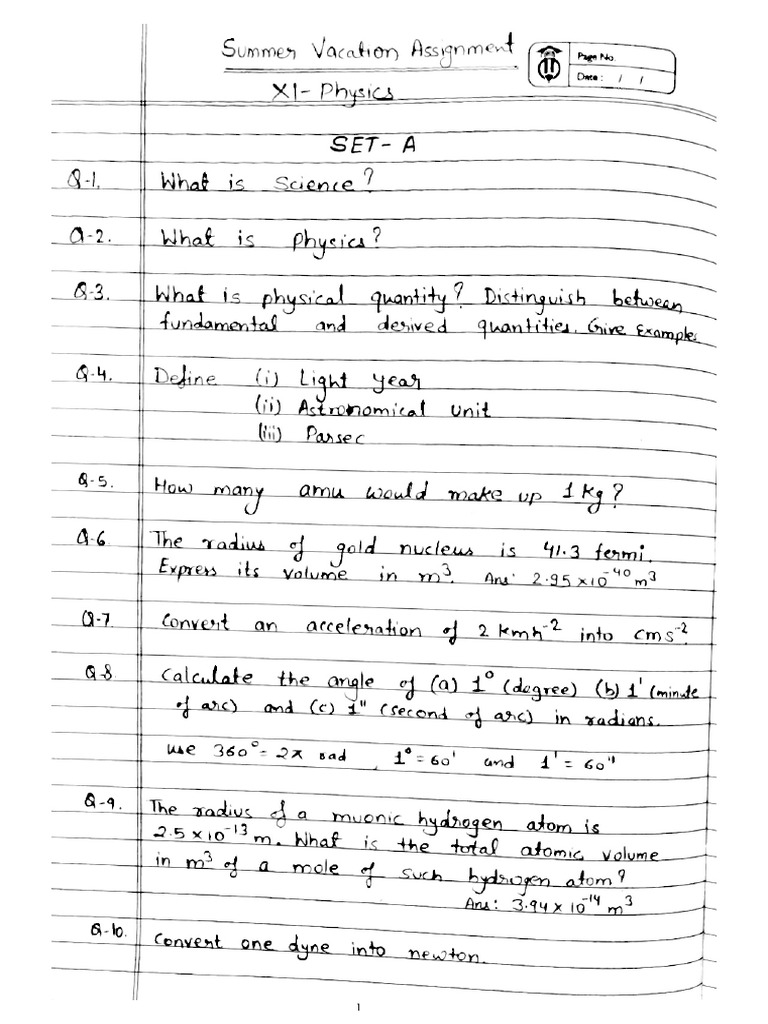 Summer Vacation Assignment
Page No.
Date : / /
XI - Physics
SET - A
Q-1. What is Science?
Q-2. What is physics?
Q-3. What is physical quantity? Distinguish between
fundamental and derived quantities. Give Examples
Q-4. Define (i) Light year
(ii) Astronomical unit
(iii) Parsec
Q-5. How many amu would make up 1 kg?
Q-6 The radius of gold nucleus is 41.3 fermi.
Express its volume in m³. Ans: 2.95 × 10⁻⁴⁰ m³
Q-7 Convert an acceleration of 2 kmh⁻² into cms⁻².
Q-8 Calculate the angle of (a) 1° (degree) (b) 1' (minute
of arc) and (c) 1" (second of arc) in radians.
use 360° = 2π rad , 1° = 60' and 1' = 60"
Q-9. The radius of a muonic hydrogen atom is
2.5 × 10⁻¹³ m. What is the total atomic volume
in m³ of a mole of such hydrogen atom?
Ans: 3.94 × 10⁻¹⁴ m³
Q-10. Convert one dyne into newton.
1